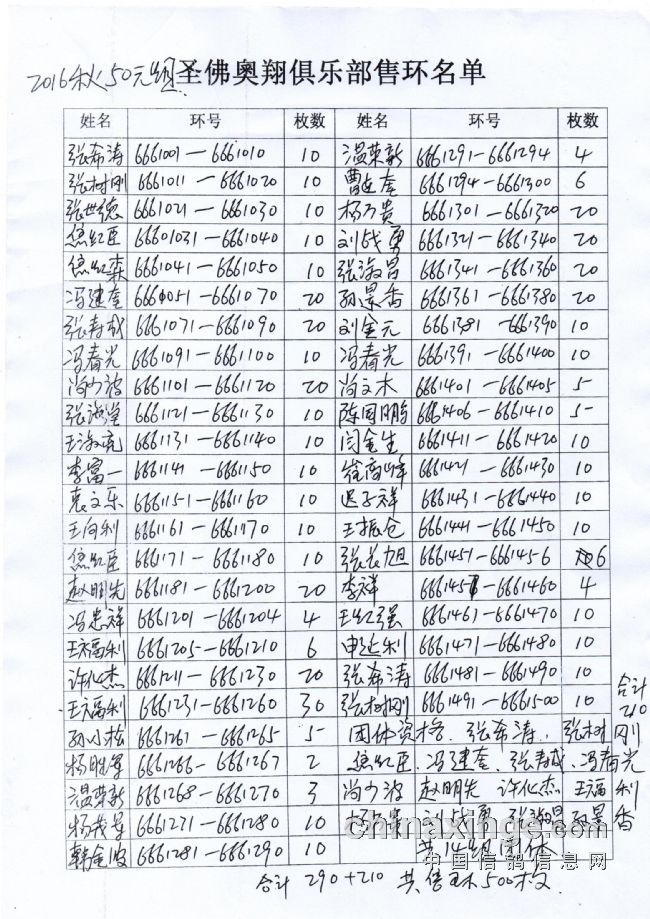 2016秋50元组 圣佛奥翔俱乐部售环名单
姓名 环号 枚数 姓名 环号 枚数
张希涛 6661001—6661010 10 温荣新 6661291—6661294 4
张树刚 6661011—6661020 10 曹延奎 6661294—6661300 6
张世德 6661021—6661030 10 杨乃贵 6661301—6661320 20
焦红臣 66601031—6661040 10 刘战勇 6661321—6661340 20
焦红森 6661041—6661050 10 张淑昌 6661341—6661360 20
冯建奎 6661051—6661070 20 孙景香 6661361—6661380 20
张寿成 6661071—6661090 20 刘金元 6661381—6661390 10
冯春光 6661091—6661100 10 冯春光 6661391—6661400 10
尚少波 6661101—6661120 20 尚文木 6661401—6661405 5
张洪堂 6661121—6661130 10 陈国鹏 6661406—6661410 5
王淑亮 6661131—6661140 10 闫金生 6661411—6661420 10
李富一 6661141—6661150 10 崔高峰 6661421—6661430 10
袁文乐 6661151—6661160 10 迟子祥 6661431—6661440 10
王向利 6661161—6661170 10 王振仓 6661441—6661450 10
焦红臣 6661171—6661180 10 张长旭 6661451—6661456 6
赵明先 6661181—6661200 20 李祥 6661457—6661460 4
冯忠祥 6661201—6661204 4 王红强 6661461—6661470 10
王福利 6661205—6661210 6 申延利 6661471—6661480 10
许化杰 6661211—6661230 20 张希涛 6661481—6661490 10
王福利 6661231—6661260 30 张树刚 6661491—6661500 10 合计210
孙小松 6661261—6661265 5 团体资格、张希涛、张树刚
杨胜军 6661266—6661267 2 焦红臣、冯建奎、张寿成、冯春光
温荣新 6661268—6661270 3 尚少波 赵明先 许化杰 王福利
杨茂军 6661271—6661280 10 杨乃贵 刘战勇 张淑昌 孙景香
韩金波 6661281—6661290 10 共14组团体
chinaxinge.com
中国信鸽信息网
合计 290+210 共售环500枚